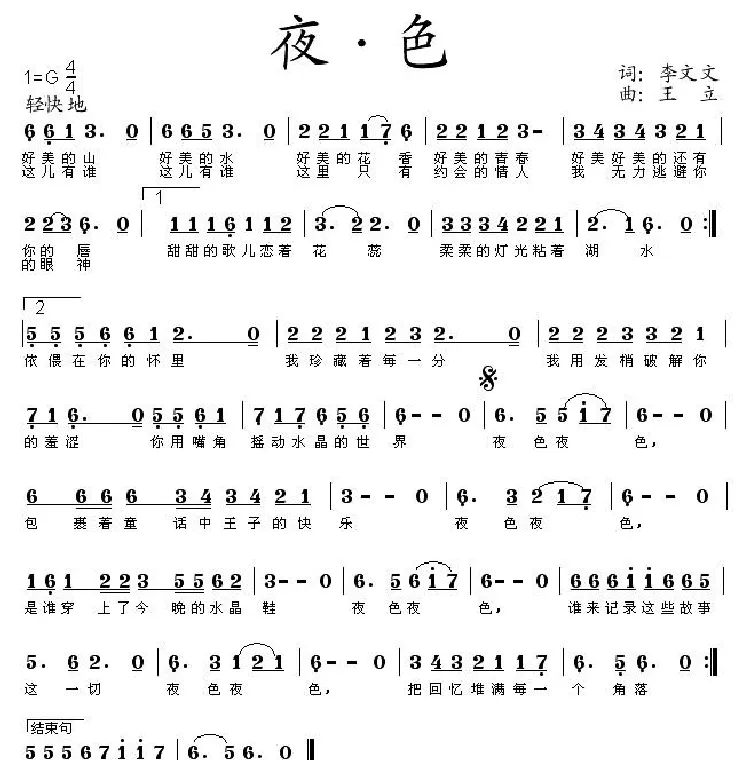 夜·色
1=G 4/4
词: 李文文
轻快地
曲: 王 立
6 6 1 3. 0 | 6 6 5 3. 0 | 2 2 1 1 1 7 6 | 2 2 1 2 3 - | 3 4 3 4 3 2 1 |
好美的山 好美的水 好美的花 香 好美的青春 好美好美的还有
这儿有谁 这儿有谁 这里 只 有 约会的情人 我 无力逃避你
1
2 2 3 6. 0 | 1 1 1 6 1 1 2 | 3. 2 2. 0 | 3 3 3 4 2 2 1 | 2. 1 6. 0 :||
你的 唇 甜甜的歌儿恋着 花 蕊 柔柔的灯光粘着 湖 水
的眼 神
2
5 5 5 6 6 1 2. 0 | 2 2 2 1 2 3 2. 0 | 2 2 2 3 2 2 3 |
依偎在你的怀里 我珍藏着每一分 我用发梢破解你
7 1 6. 0 5 5 6 1 | 7 1 7 6 5 6 | 6 - - 0 | 6. 5 5 i 7 | 6 - - 0 |
的羞涩 你用嘴角 摇动水晶的世 界 夜 色夜 色,
6 6 6 6 3 4 3 4 2 1 | 3 - - 0 | 6. 3 2 1 7 | 6 - - 0 |
包 裹着童 话中王子的快 乐 夜 色夜 色,
1 6 1 2 2 3 5 5 6 2 | 3 - - 0 | 6. 5 6 i 7 | 6 - - 0 | 6 6 6 i i 6 6 5 |
是谁穿 上了今 晚的水晶 鞋 夜 色夜 色, 谁来记录这些故事
5. 6 2. 0 | 6. 3 1 2 1 | 6 - - 0 | 3 4 3 2 1 1 7 | 6. 5 6. 0 :||
这 一切 夜 色夜 色, 把回忆堆满每一 个 角落
结束句
5 5 5 6 7 i i 7 | 6. 5 6. 0 ||